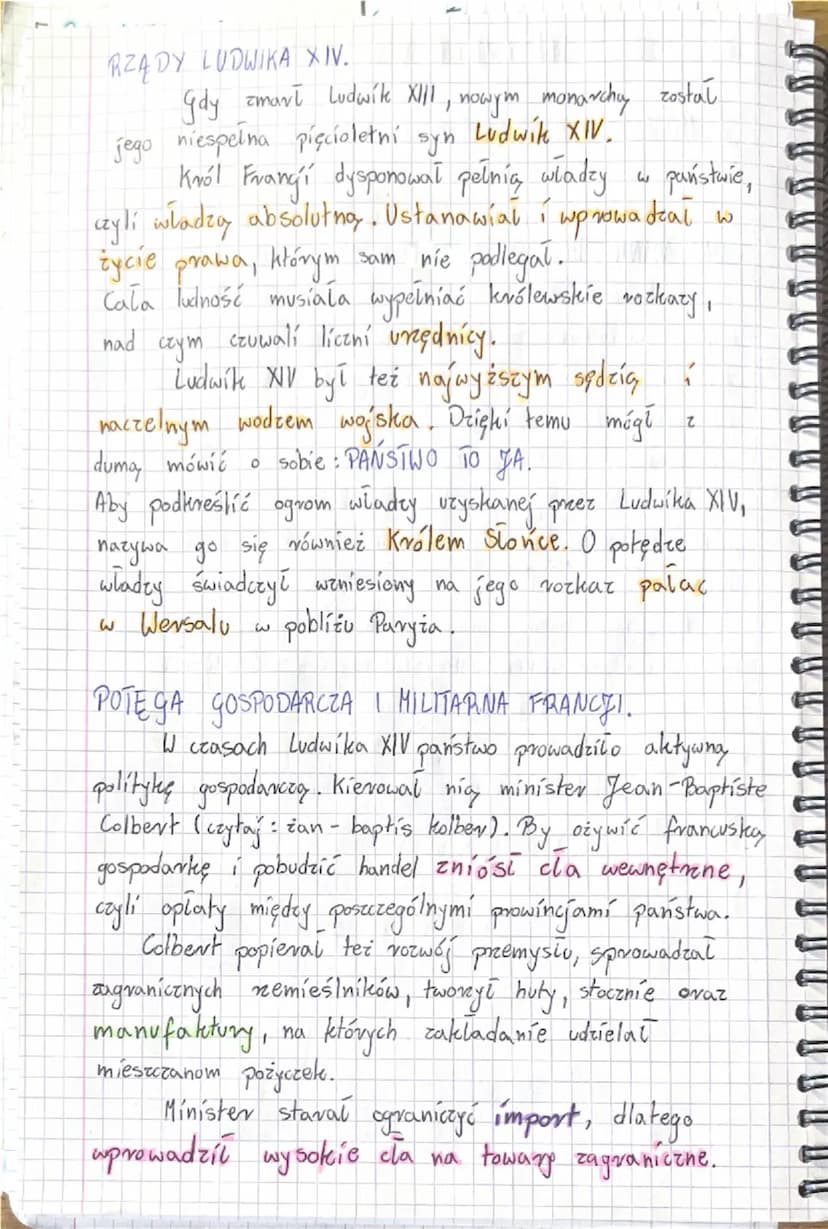 RZĄDY LUDWIKA XIV.
Gdy zmarł Ludwik XIII, nowym monarchą został
jego niespełna pięcioletni syn Ludwik XIV.
Król Francji dysponował pełnią władzy w państwie,
czyli władzą absolutną. Ustanawiał i wprowadzał w
życie prawa, którym sam nie podlegał.
Cała ludność musiała wypełniać królewskie rozkazy,
nad czym czuwali liczni urzędnicy.
Ludwik XIV był też najwyższym sędzią i
naczelnym wodzem wojska. Dzięki temu mógł z
dumą mówić o sobie: PAŃSTWO TO JA.
Aby podkreślić ogrom władzy uzyskanej przez Ludwika XIV,
nazywa go się również Królem Słońce. O potędze
władzy świadczył wzniesiony na jego rozkaz pałac
w Wersalu w pobliżu Paryża.
POTĘGA GOSPODARCZA I MILITARNA FRANCJI.
W czasach Ludwika XIV państwo prowadziło aktywną
politykę gospodarczą. Kierował nią minister Jean-Baptiste
Colbert (czytaj: żan-baptis kolber). By ożywić francuską
gospodarkę i pobudzić handel zniósł cła wewnętrzne,
czyli opłaty między poszczególnymi prowincjami państwa.
Colbert popierał też rozwój przemysłu, sprowadzał
zagranicznych rzemieślników, tworzył huty, stocznie oraz
manufaktury, na których zakładanie udzielał
mieszczanom pożyczek.
Minister starał ograniczyć import, dlatego
wprowadził wysokie cła na towary zagraniczne.